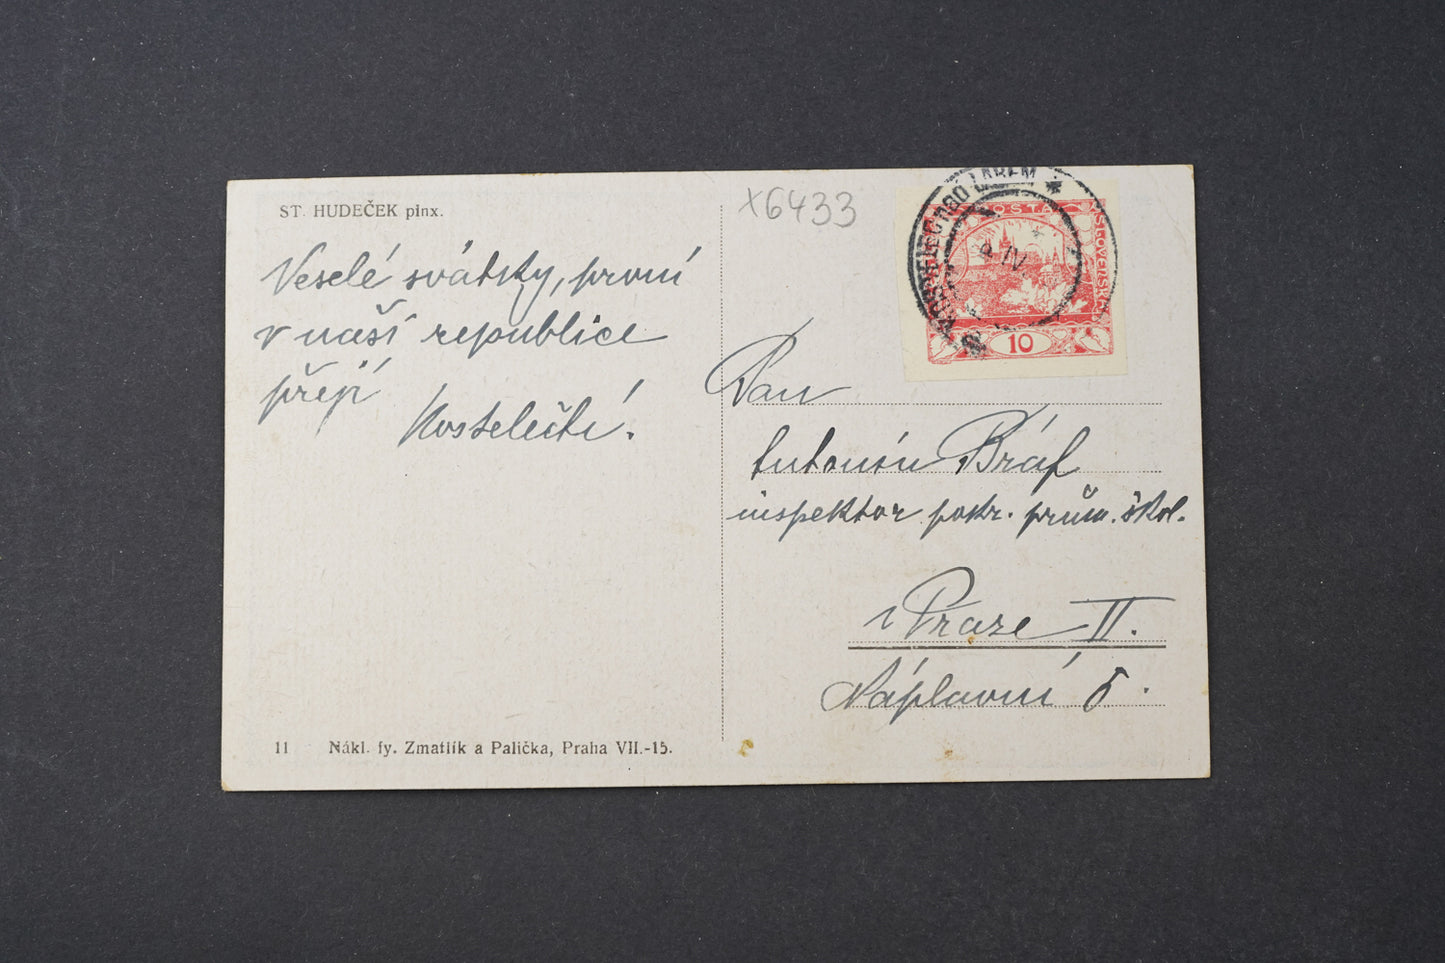 ST. HUDEČEK pinx.
x6433
Veselé svátky, první
v naší republice
přejí
Kostelečtí.
POŠTA
SLOVENSK
10
9 IV
Pan
Antonín Bráf
inspektor pokr. prům. škol.
v Praze II.
Náplavní 5.
11 Nákl. fy. Zmatlík a Palička, Praha VII.-15.